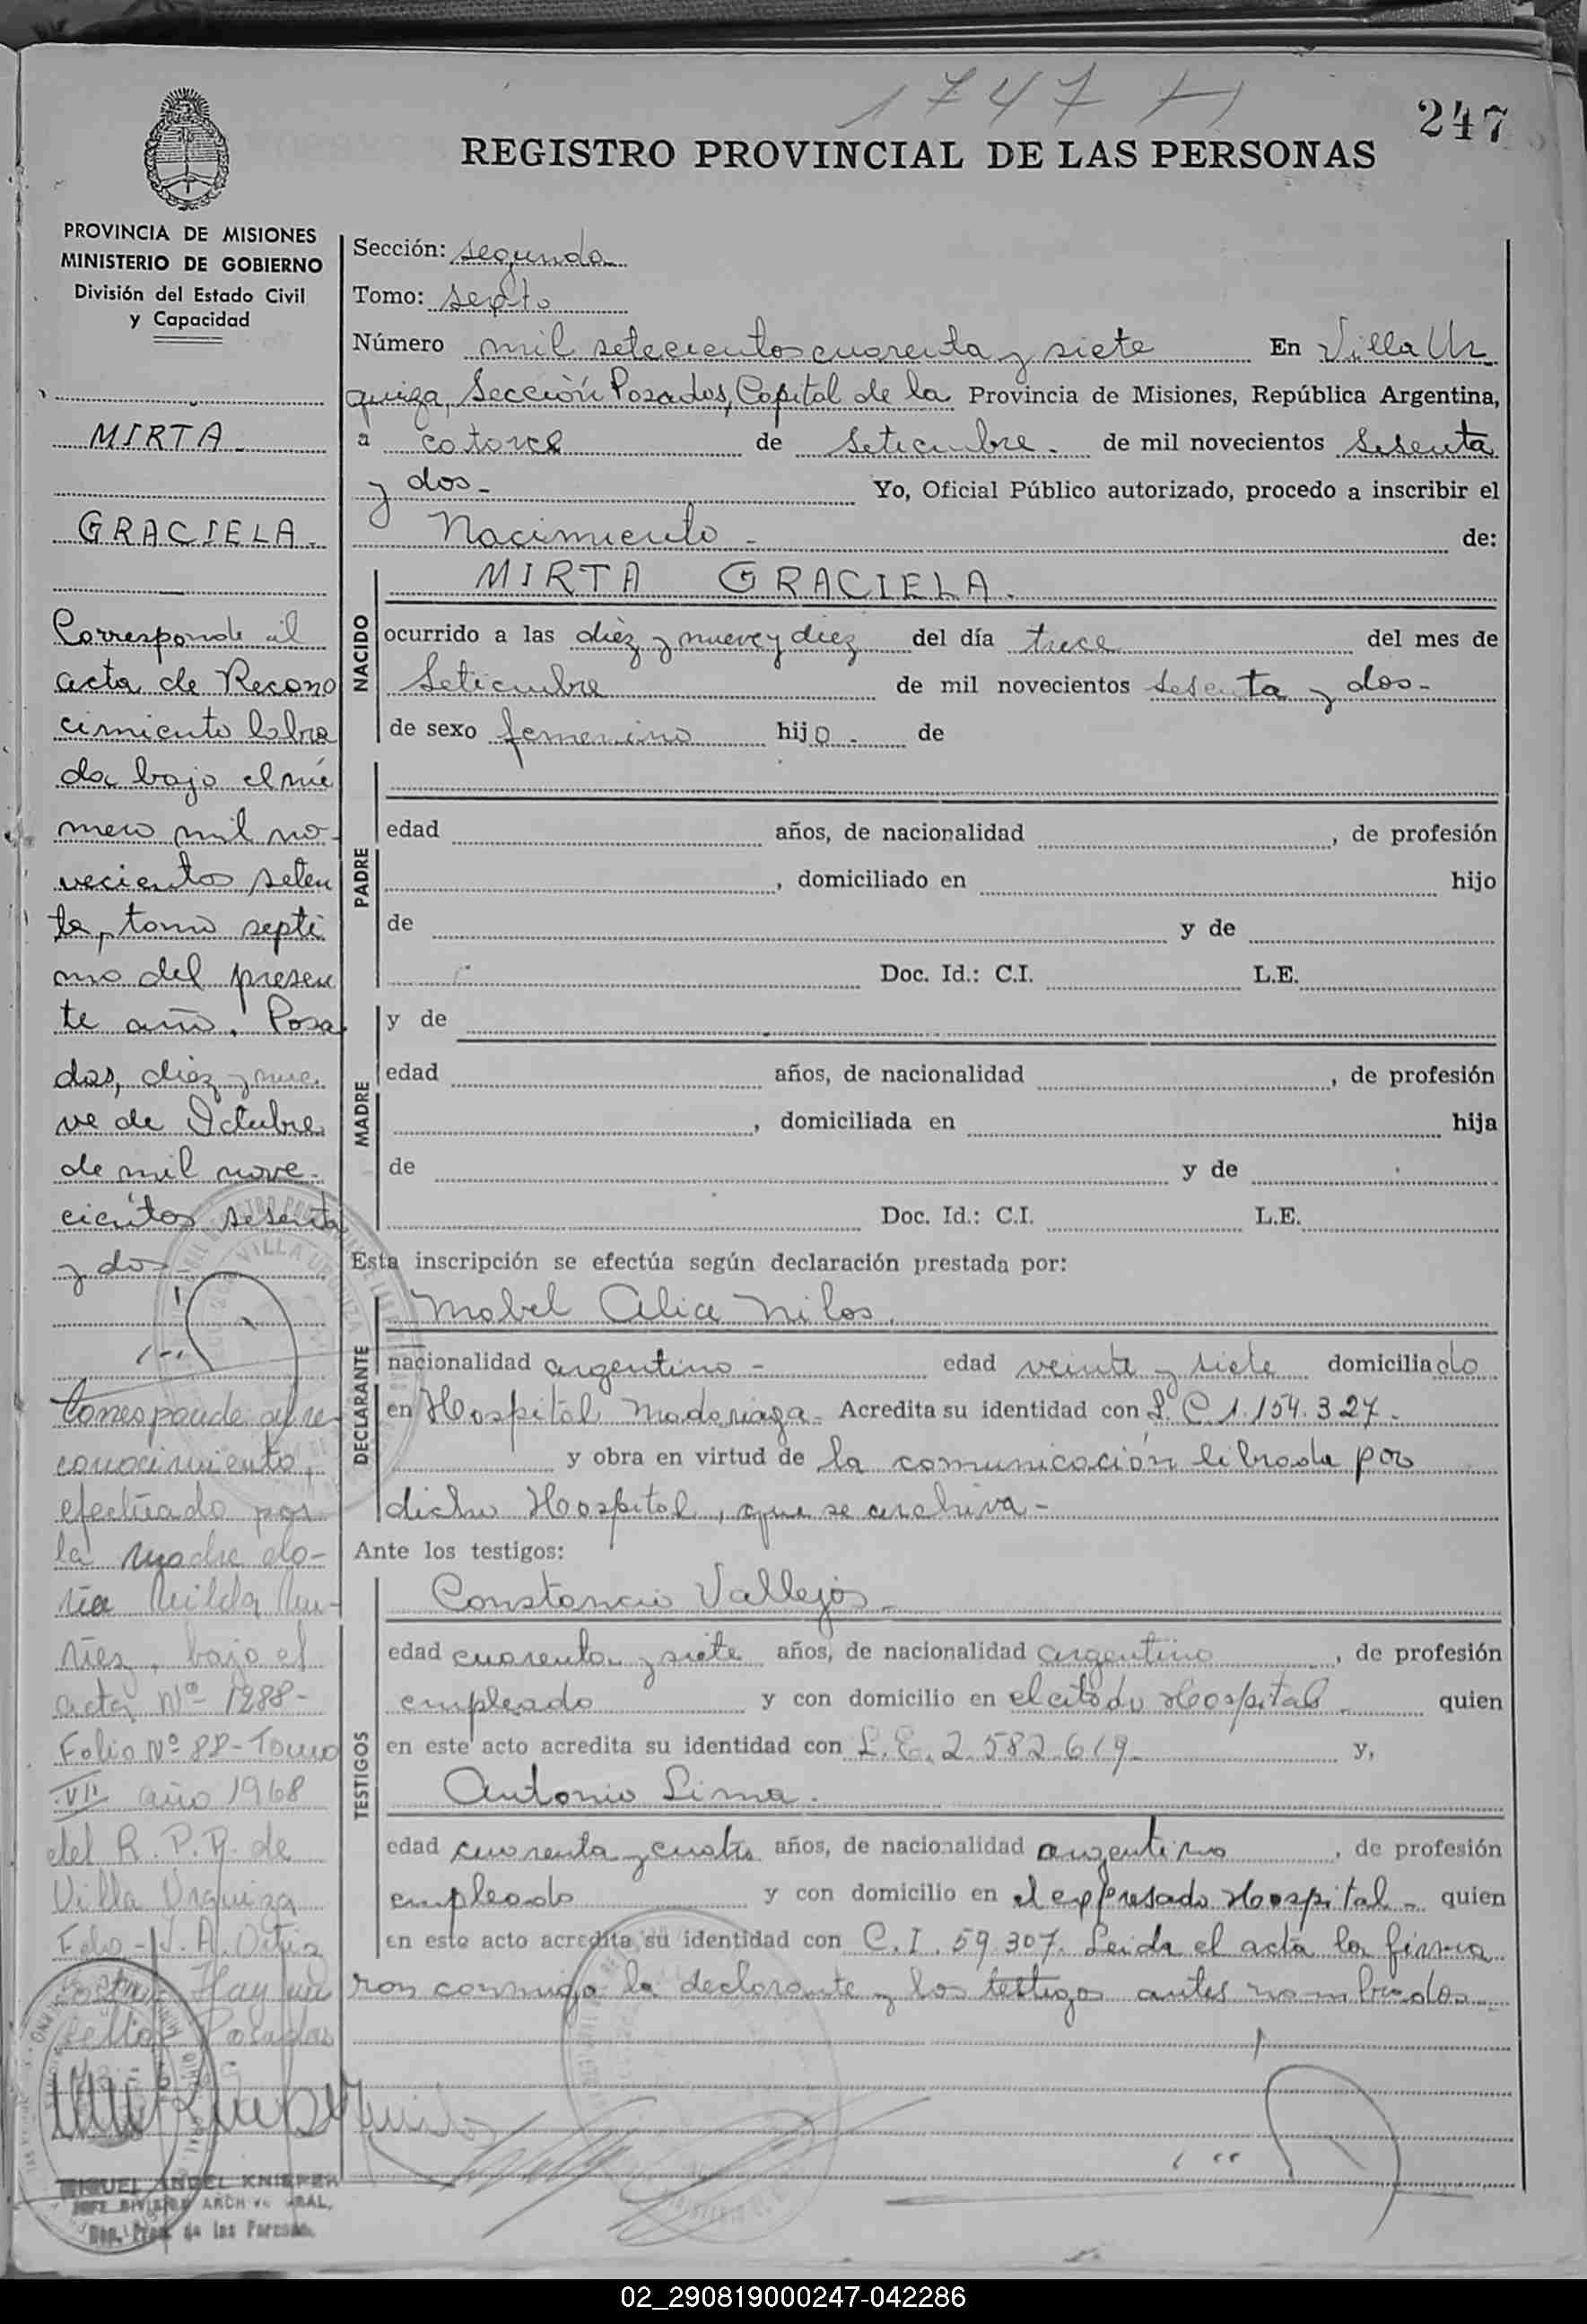 1747 H
247
REGISTRO PROVINCIAL DE LAS PERSONAS
PROVINCIA DE MISIONES
MINISTERIO DE GOBIERNO
División del Estado Civil
y Capacidad
MIRTA
GRACIELA.
Corresponde al
acta de Recono
cimiento labra
da bajo el nú
mero mil no-
vecientos seten
ta, tomo septi
mo del presen
te año. Posa
das, diez y nue
ve de Octubre
de mil nove-
cientos sesenta
y dos-
Corresponde al re-
conocimiento,
efectuado por
la madre do-
ña Nilda
bajo el
acta Nº 1288-
Folio Nº 88- Tomo
VII año 1968
del R. P. P. de
Villa Urquiza
Fdo- J. A. Ortiz
Hay un
sello. Posadas
MIGUEL ANGEL KNIEPER
JEFE DIVISION ARCH GRAL.
Prov. de las Personas
Sección: segunda
Tomo: sexto
Número mil setecientos cuarenta y siete En Villa Ur
quiza, Sección Posadas, Capital de la Provincia de Misiones, República Argentina,
a catorce de Setiembre. de mil novecientos sesenta
y dos- Yo, Oficial Público autorizado, procedo a inscribir el
Nacimiento - de:
NACIDO
MIRTA GRACIELA.
ocurrido a las diez y nueve y diez del día trece del mes de
Setiembre de mil novecientos sesenta y dos-
de sexo femenino hija - de
PADRE
edad años, de nacionalidad , de profesión
, domiciliado en hijo
de y de
Doc. Id.: C.I. L.E.
MADRE
y de
edad años, de nacionalidad , de profesión
, domiciliada en hija
de y de
Doc. Id.: C.I. L.E.
Esta inscripción se efectúa según declaración prestada por:
DECLARANTE
Mabel Alice Nilos
nacionalidad argentina - edad veinte y siete domiciliado
en Hospital Madariaga - Acredita su identidad con L. C. 1.154.327-
y obra en virtud de la comunicación librada por
dicho Hospital, que se archiva-
Ante los testigos:
TESTIGOS
Constancio Vallejos-
edad cuarenta y siete años, de nacionalidad argentino , de profesión
empleado y con domicilio en el citado Hospital - quien
en este acto acredita su identidad con L. E. 2.582.619- y,
Antonio Lima.
edad cuarenta y cuatro años, de nacionalidad argentino , de profesión
empleado y con domicilio en el expresado Hospital - quien
en este acto acredita su identidad con C. I. 59.307. Leida el acta la firma
ron conmigo la declarante y los testigos antes nombrados.
02_290819000247-042286